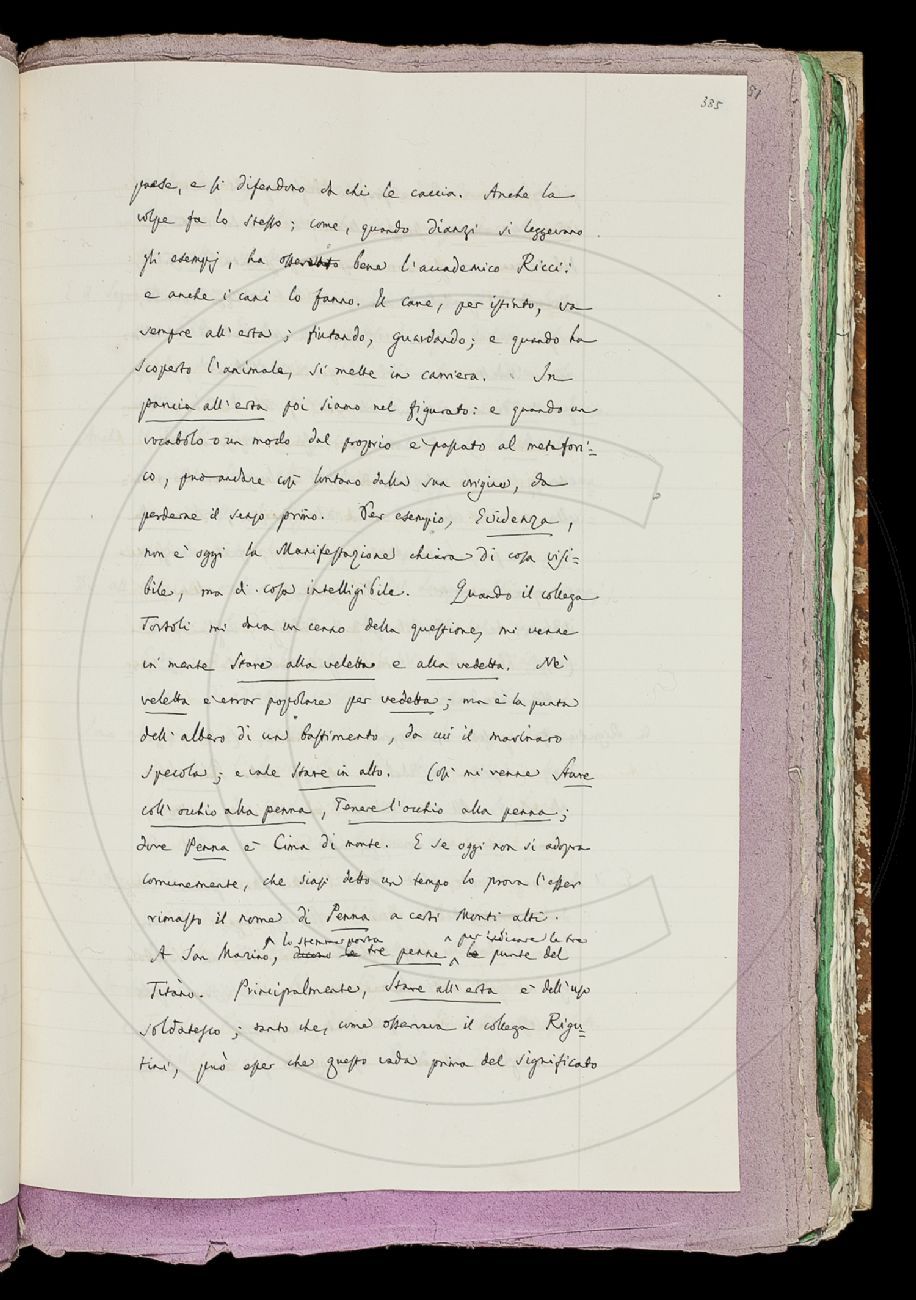 385
51
paese, e si difendono da chi le caccia. Anche la
volpe fa lo stesso; come, quando dianzi si leggevano
gli esempj, ha osservato bene l'accademico Ricci:
e anche i cani lo fanno. Il cane, per istinto, va
sempre all'erta; fiutando, guardando; e quando ha
scoperto l'animale, si mette in carriera. In
pancia all'erta poi siamo nel figurato: e quando un
vocabolo o un modo dal proprio è passato al metafori=
co, può andare così lontano dalla sua origine, da
perderne il senso primo. Per esempio, Evidenza,
non è oggi la Manifestazione chiara di cosa visi=
bile, ma di cosa intelligibile. Quando il collega
Tortoli mi dava un cenno della questione, mi venne
in mente Stare alla veletta e alla vedetta. Nè
veletta è error popolare per vedetta; ma è la punta
dell'albero di un bastimento, da cui il marinaro
specola; e vale Stare in alto. Così mi venne Stare
coll'occhio alla penna, Tenere l'occhio alla penna;
dove Penna è Cima di monte. E se oggi non si adopra
comunemente, che siasi detto un tempo lo prova l'esser
rimasto il nome di Penna a certi Monti alti.
lo stemma porta per indicare le tre
A San Marino, dicono le tre penne le punte del
Titàno. Principalmente, Stare all'erta è dell'uso
soldatesco; tanto che, come osservava il collega Rigu=
tini, può esser che questo vada prima del significato